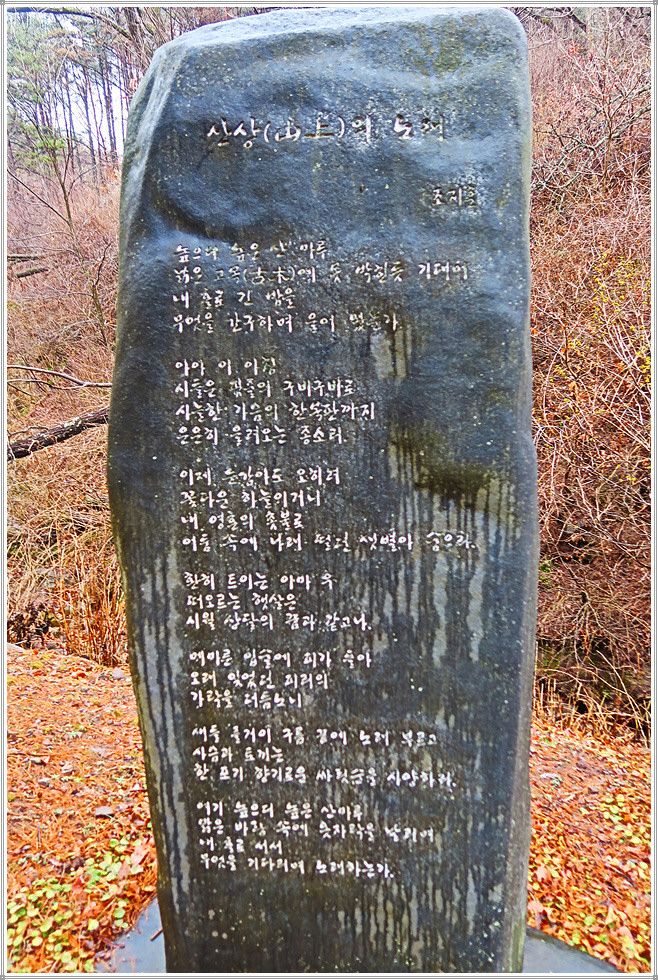 산상(山上)의 노래
조지훈
높으디 높은 산 마루
낡은 고목(古木)에 못 박힌듯 기대여
내 홀로 긴 밤을
무엇을 간구하며 울어 왔는가
아아 이 아침
시들은 핏줄의 구비구비로
사늘한 가슴의 한복판까지
은은히 울려오는 종소리
이제 눈감아도 오히려
꽃다운 하늘이거니
내 영혼의 촛불로
어둠 속에 나래 떨던 샛별아 숨으라.
환히 트이는 이마 우
떠오르는 햇살은
시월 상달의 꿈과 같고나.
메마른 입술에 피가 돌아
오래 잊었던 피리의
가락을 더듬노니
새들 즐거이 구름 끝에 노래 부르고
사슴과 토끼는
한 포기 향기로운 싸릿순을 사양하라.
여기 높으디 높은 산마루
맑은 바람 속에 옷자락을 날리며
내 홀로 서서
무엇을 기다리며 노래하는가.